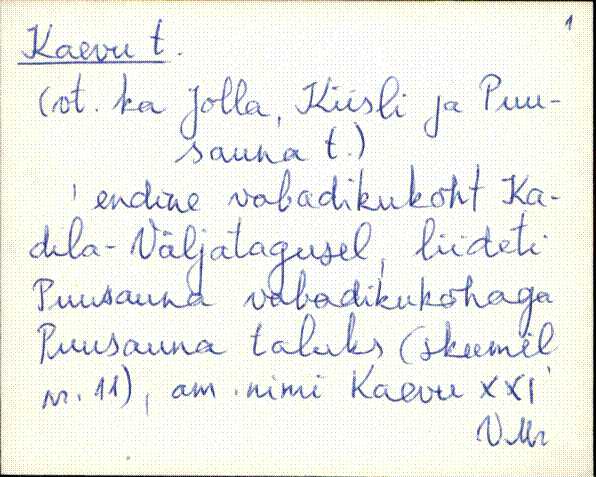 1
Kaevu t.
(vt. ka Jolla, Kiisli ja Puu-
sauna t.)
endine vabadikukoht Ka-
dila-Väljatagusel, liideti
Puusauna vabadikukohaga
Puusauna taluks (skeemil
nr. 11), am. nimi Kaevu XXI
VMr